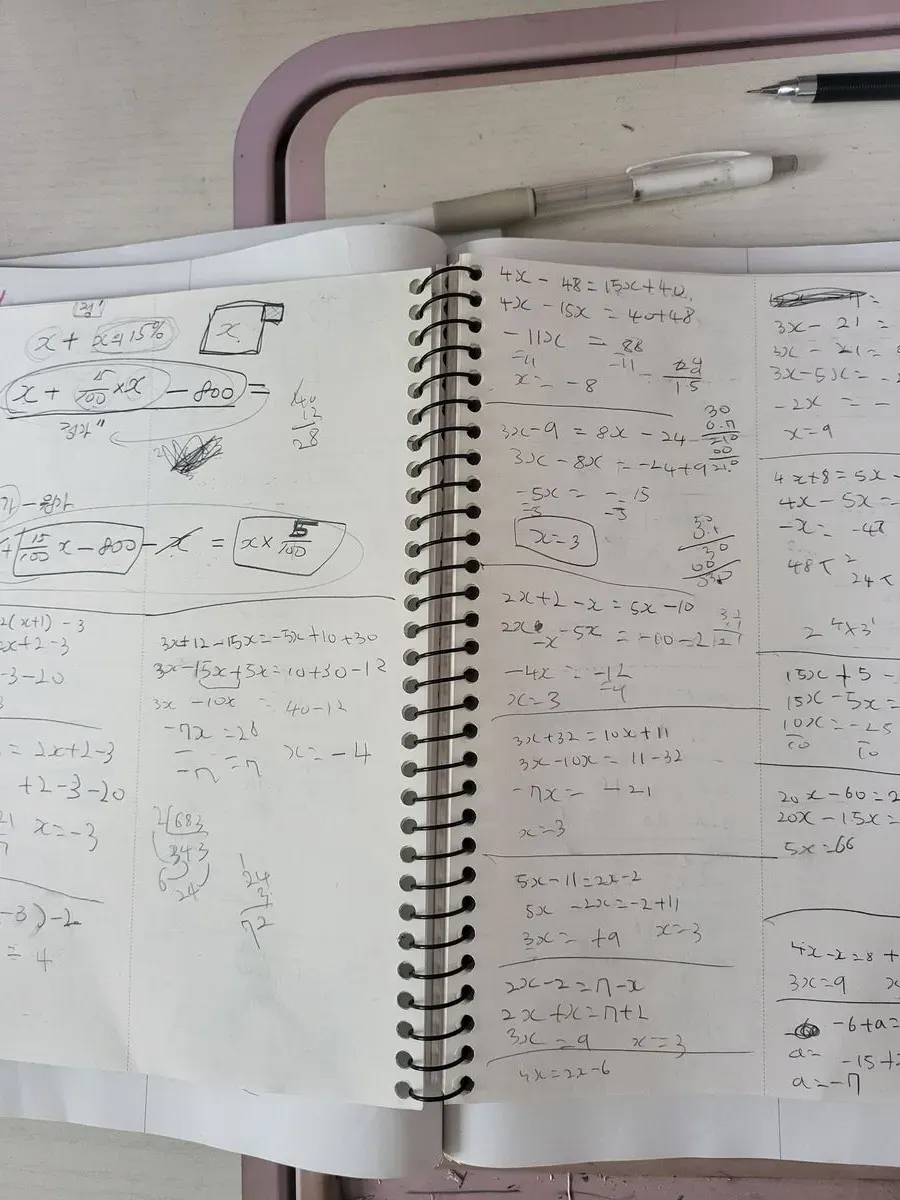 x + x × 15%
x
x + 15/100 × x - 800 =
40
12
28
15/100 x - 800 - x = x × 15/100
2(x+1) - 3
2x+2-3
-3-20
= 2x+2-3
+2-3-20
21 x=-3
-3)-2
= 4
3x+12-15x=-5x+10+30
3x-15x+5x=10+30-12
3x -10x = 40-12
-7x=28
-7 = 7 x=-4
2 683
343
6
24
24
3
72
4x - 48 = 15x+40
4x - 15x = 40+48
-11x = 88
-11 -11
x = -8
15
3x-9 = 8x - 24
3x - 8x = -24+9
-5x = -15
-5 -5
x=3
30
0.7
210
00
210
2x+2-x = 5x-10
2x -x -5x = -10-2
-4x = -12
-4
x=3
3x+32 = 10x+11
3x-10x = 11-32
-7x = -21
x=3
5x-11=2x-2
5x -2x=-2+11
3x = +9 x=3
2x-2=7-x
2x+x=7+2
3x=9 x=3
4x=2x-6
3x - 21 =
3x - 21 =
3x-5x = -
-2x = -
x=9
4x+8=5x-
4x-5x=
-x=
48
24
2⁴×3
15x+5-
15x-5x=
10x=-25
10 10
20x-60=2
20x-15x=
5x=66
4x-x=8+
3x=9
-6+a=
a= -15+
a=-7